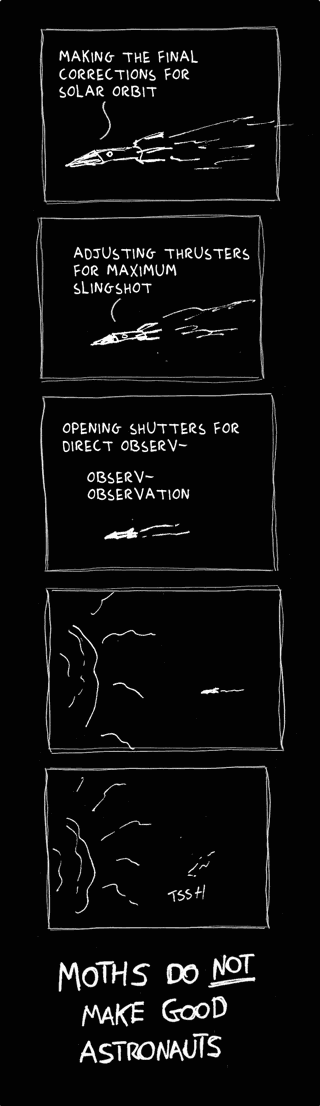 MAKING THE FINAL
CORRECTIONS FOR
SOLAR ORBIT
ADJUSTING THRUSTERS
FOR MAXIMUM
SLINGSHOT
OPENING SHUTTERS FOR
DIRECT OBSERV~
OBSERV~
OBSERVATION
TSSH
MOTHS DO NOT
MAKE GOOD
ASTRONAUTS